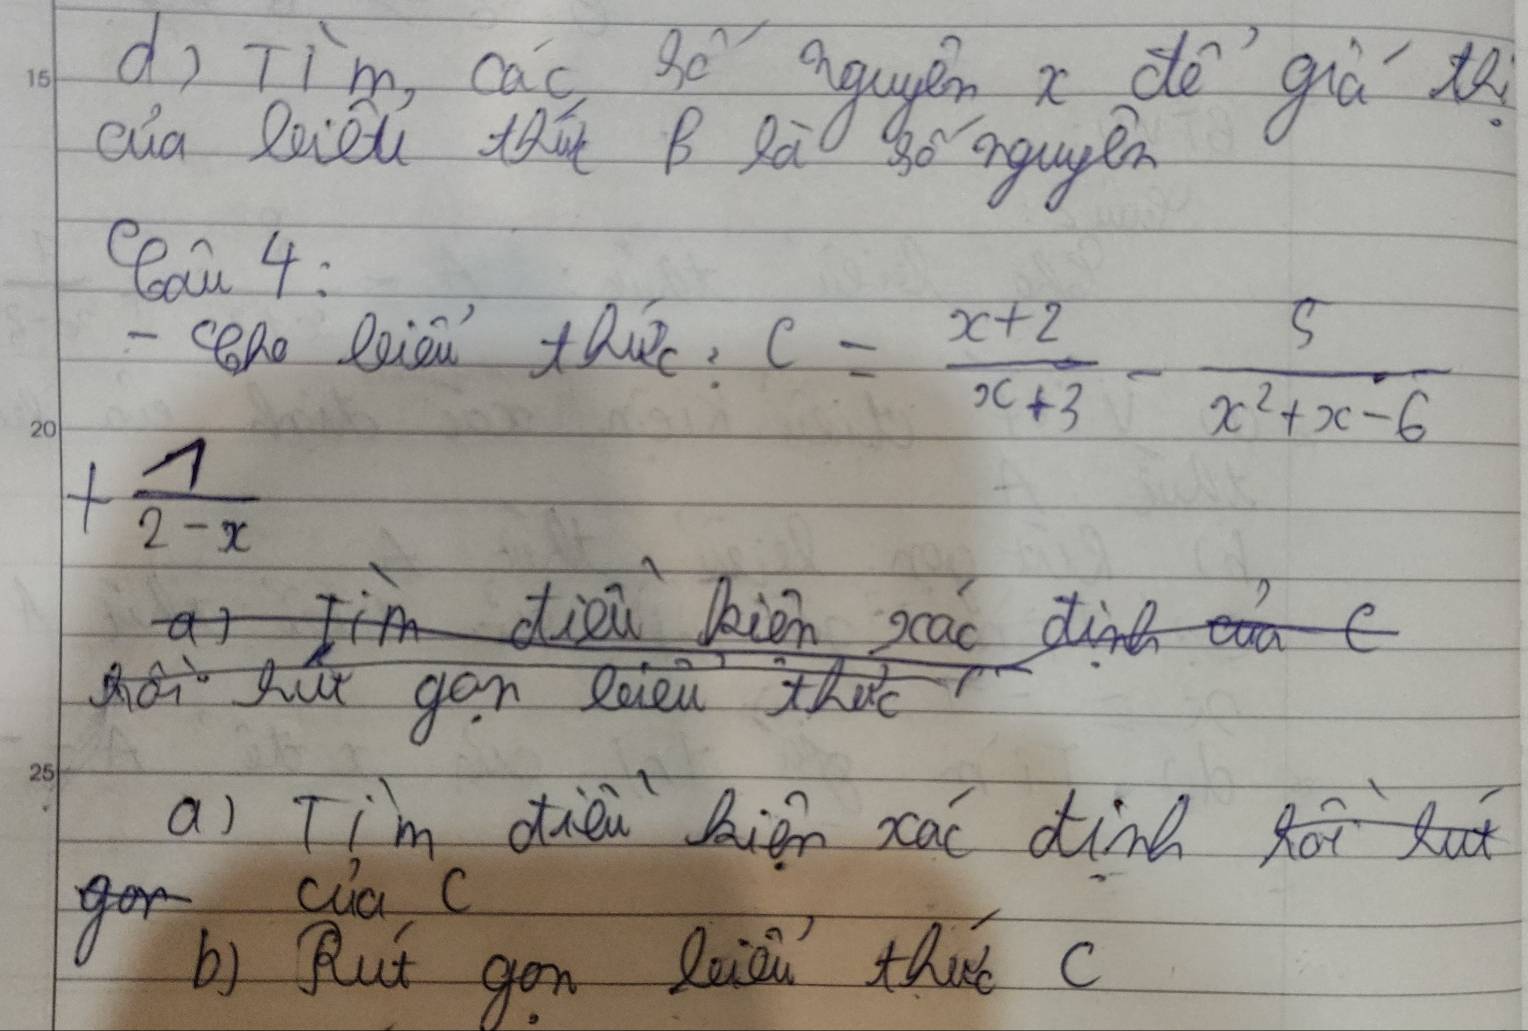 15
d) Tìm, các số nguyên x để giá trị
của biểu thức B là số nguyên
Câu 4:
- Cho biểu thức: C = \frac{x+2}{x+3} - \frac{5}{x^2+x-6}
20
+ \frac{1}{2-x}
a) Tìm điều kiện xác định của C
rồi rút gọn biểu thức
25
a) Tìm điều kiện xác định rồi rút
gọn của C
b) Rút gọn biểu thức C